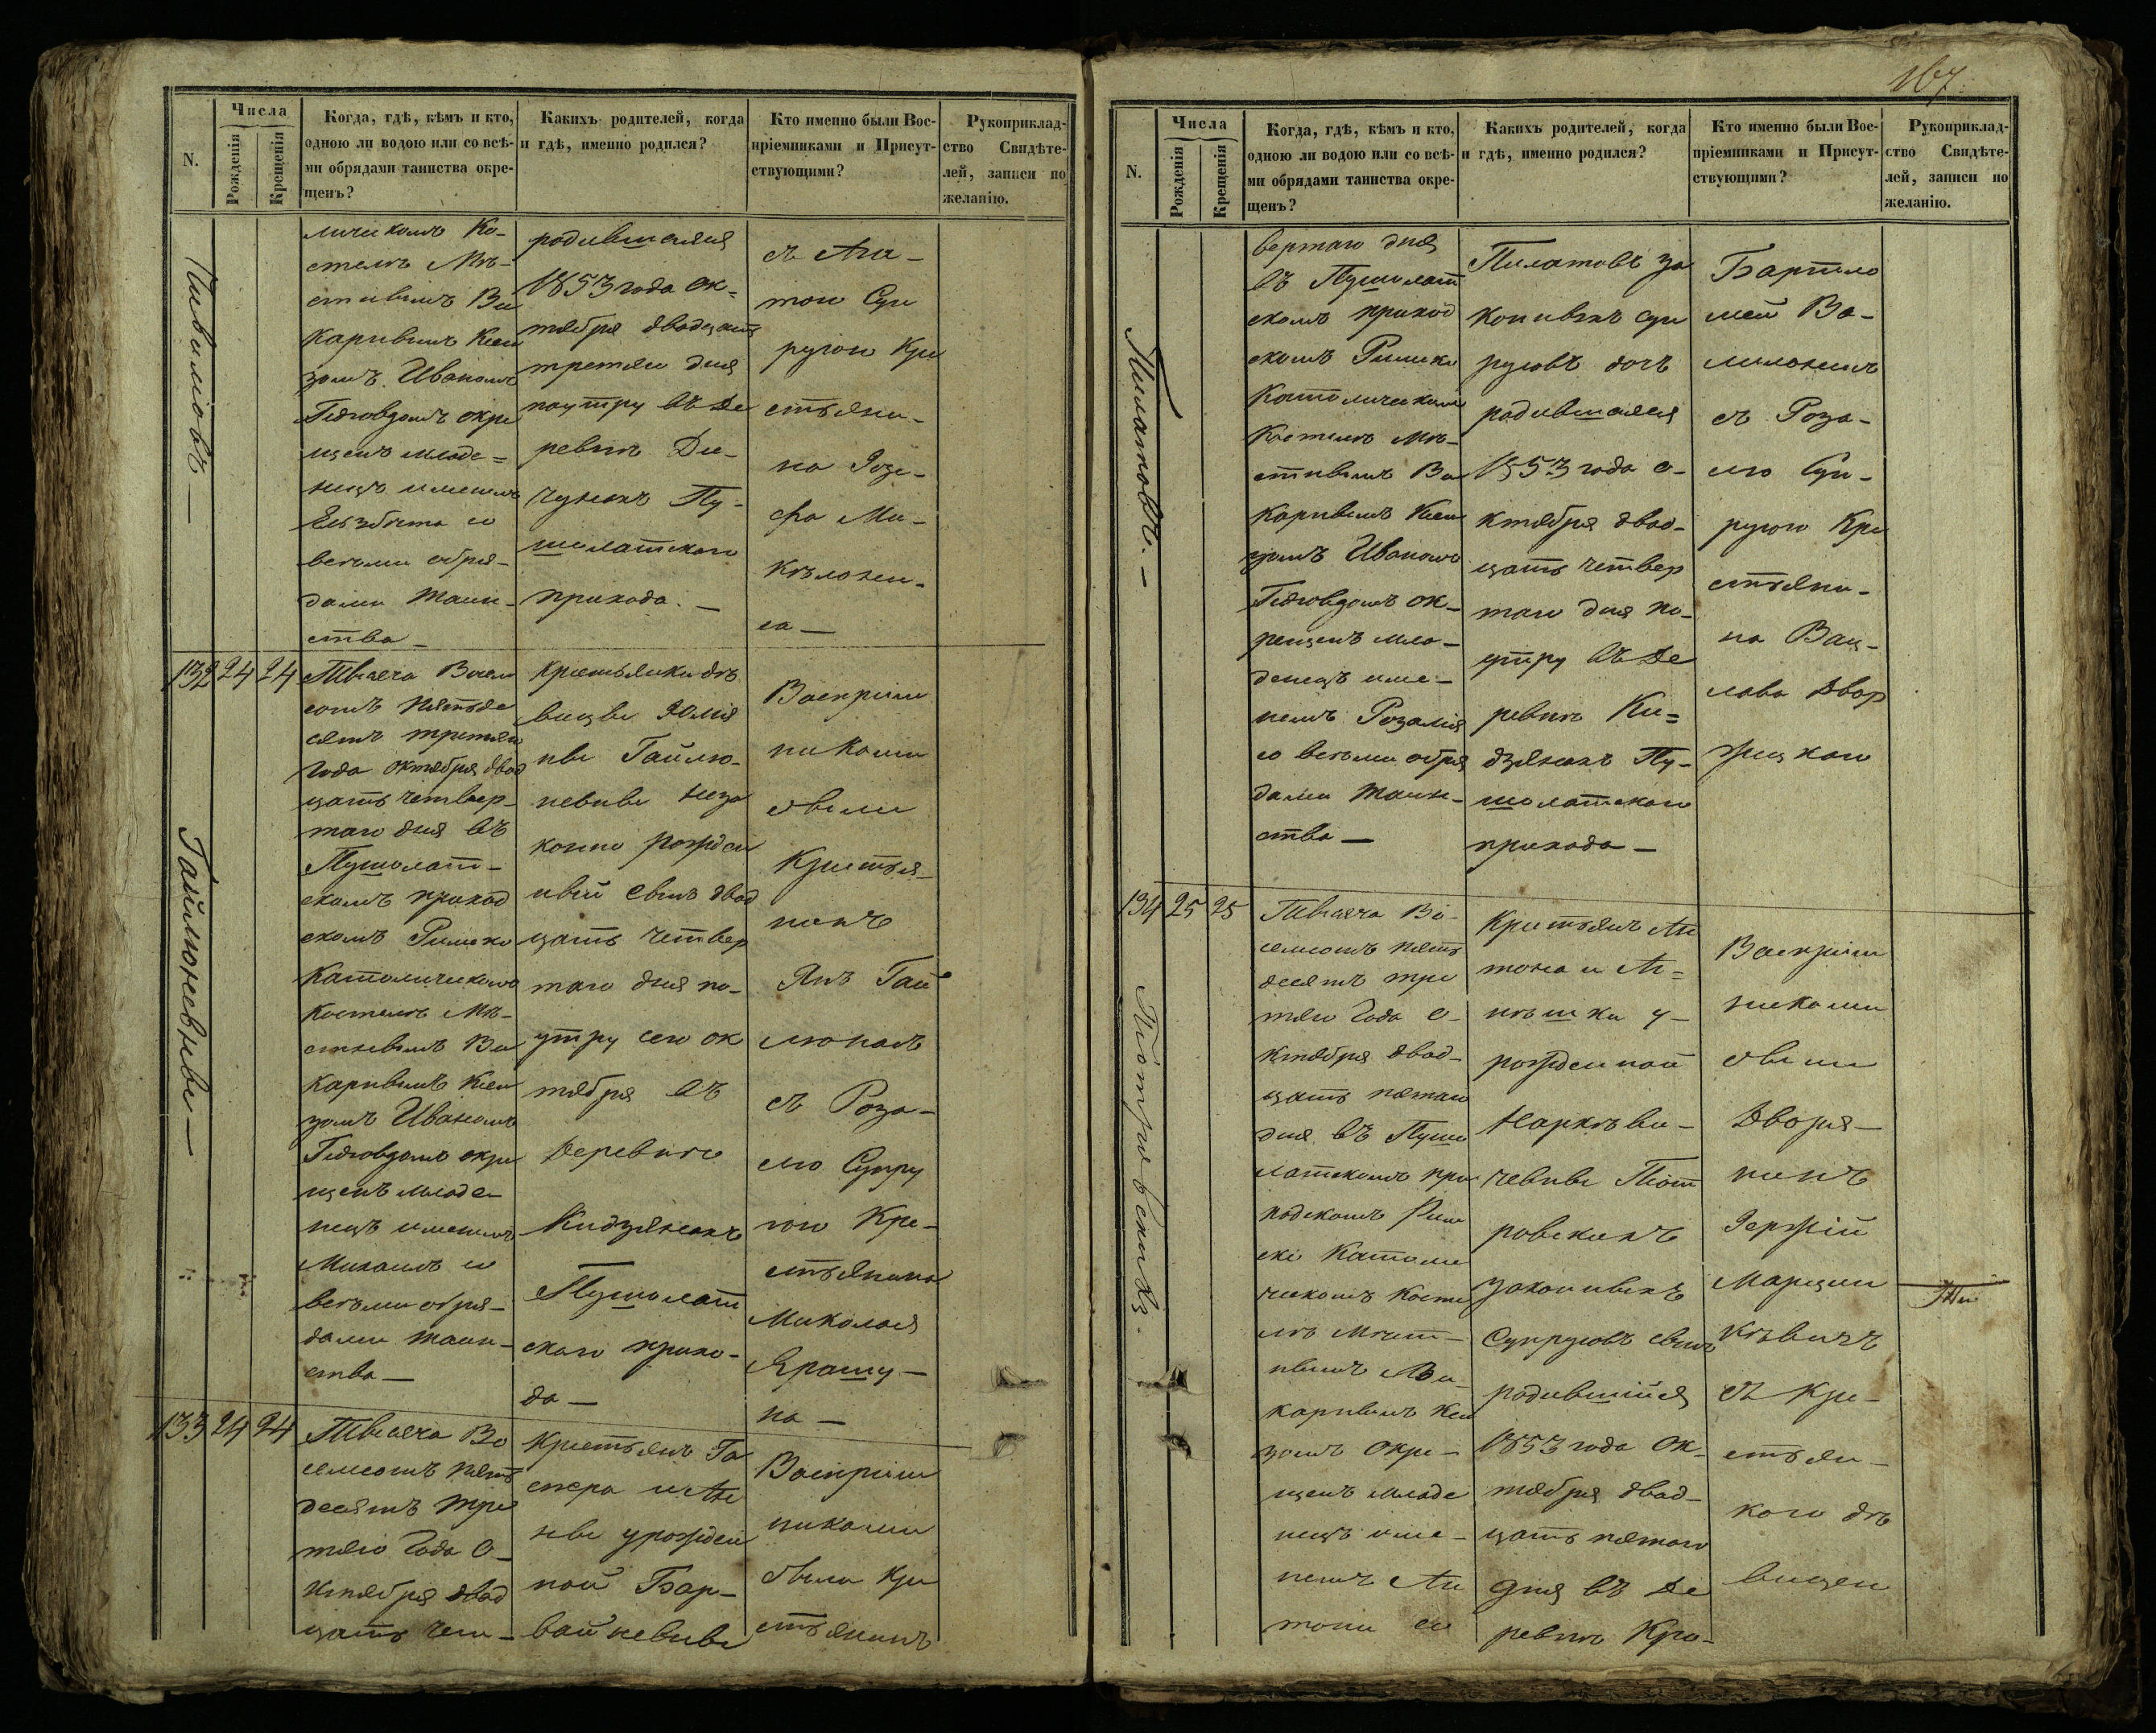 N.
Числа
Рожденія
Крещенія
Когда, гдѣ, кѣмъ и кто,
одною ли водою или со всѣ-
ми обрядами таинства окре-
щенъ?
Какихъ родителей, когда
и гдѣ, именно родился?
Кто именно были Вос-
пріемниками и Присут-
ствующими?
Рукоприклад-
ство Свидѣте-
лей, записи по
желанію.
личиском Ко-
стелѣ Мѣ-
стнымъ Ви
карнымъ Ксен
зомъ Иваномъ
окре
щенъ младе=
нецъ именемъ
Ельзбѣта со
всѣми обря-
дами таин-
ства —
родившаяся
1853 года Ок=
тября двадцать
третяго дня
поутру въ де
ревнѣ
Пу-
шолатского
прихода. —
съ Ан-
тон Суп
ругою Кре
стьяни-
на Іозе-
фа Ми-
кѣлонен-
са —
132 24 24
Тысяча Восем
сотъ пятьде
сятъ третяго
года октября двад
цать четвер-
таго дня въ
Пушолат-
скомъ приход
скомъ Римско
Католическомъ
Костелѣ Мѣ-
стнымъ Ви
карнымъ Ксен
зомъ Иваномъ
окре
щенъ младе
нецъ именемъ
Михаилъ со
всѣми обря-
дами таин-
ства —
Гайлюневны —
Крестьянки дѣ
вицы
ны Гайлю-
невны неза
конно рожден
ный сынъ двад
цать четвер
таго дня по-
утру сего ок
тября въ
деревнѣ
Кидзянахъ
Пушолат
скаго прихо-
да —
Воспріем
никами
были
Крестья-
нинъ
Янъ Гай
люнасъ
съ Роза-
лію Супру
гою Кре-
стьянина
Миколая
Ярашу-
на —
133 24 24
Тысяча Во
семсотъ пять
десятъ тре
тяго Года О-
ктября двад
цать чет-
Крестьянъ Га
спера и Ан
ны урожден
ной Бар-
вайневны
Воспріем
никами
были Кре
стьянинъ
167
N.
Числа
Рожденія
Крещенія
Когда, гдѣ, кѣмъ и кто,
одною ли водою или со всѣ-
ми обрядами таинства окре-
щенъ?
Какихъ родителей, когда
и гдѣ, именно родился?
Кто именно были Вос-
пріемниками и Присут-
ствующими?
Рукоприклад-
ство Свидѣте-
лей, записи по
желанію.
вертаго дня
въ Пушолат
скомъ приход
скомъ Римско
Католическомъ
Костелѣ Мѣ-
стнымъ Ви
карнымъ Ксен
зомъ Иваномъ
ок-
рещенъ мла-
денецъ име-
немъ Розалія
со всѣми обря
дами таин-
ства —
Пилатовъ. —
Пилатовъ за
конныхъ суп
руговъ дочь
родившаяся
1853 года О-
ктября двад-
цать четвер
таго дня по-
утру въ де
ревнѣ Ки=
дзянахъ Пу-
шолатского
прихода —
Бартло
мей
съ Роза-
лію Суп-
ругою Кре
стьяни-
на Вац-
лава Двор
жецкого
134 25 25
Тысяча Во-
семсотъ пять
десятъ тре
тяго Года О-
ктября двад-
цать пятаго
дня въ Пушо
латскомъ при
ходскомъ Рим
ско Католи
ческомъ Косте
лѣ Мѣст-
нымъ Ви
карнымъ Ксен
зомъ Окре-
щенъ младе
нецъ име-
немъ Ан
тони со
Піотровскихъ.
Крестьянъ Ан
тона и Аг=
нѣшки у-
рожденной
Наркѣви-
чевны Піот
ровскихъ
законныхъ
Супруговъ сынъ
родившійся
1853 года Ок-
тября двад-
цать пятаго
дня въ де
ревнѣ Кра-
Воспріем
никами
были
Дворя-
нинъ
Іержій
Марцин
кѣвичъ
съ Кре-
стьян-
кою дѣ
вицею